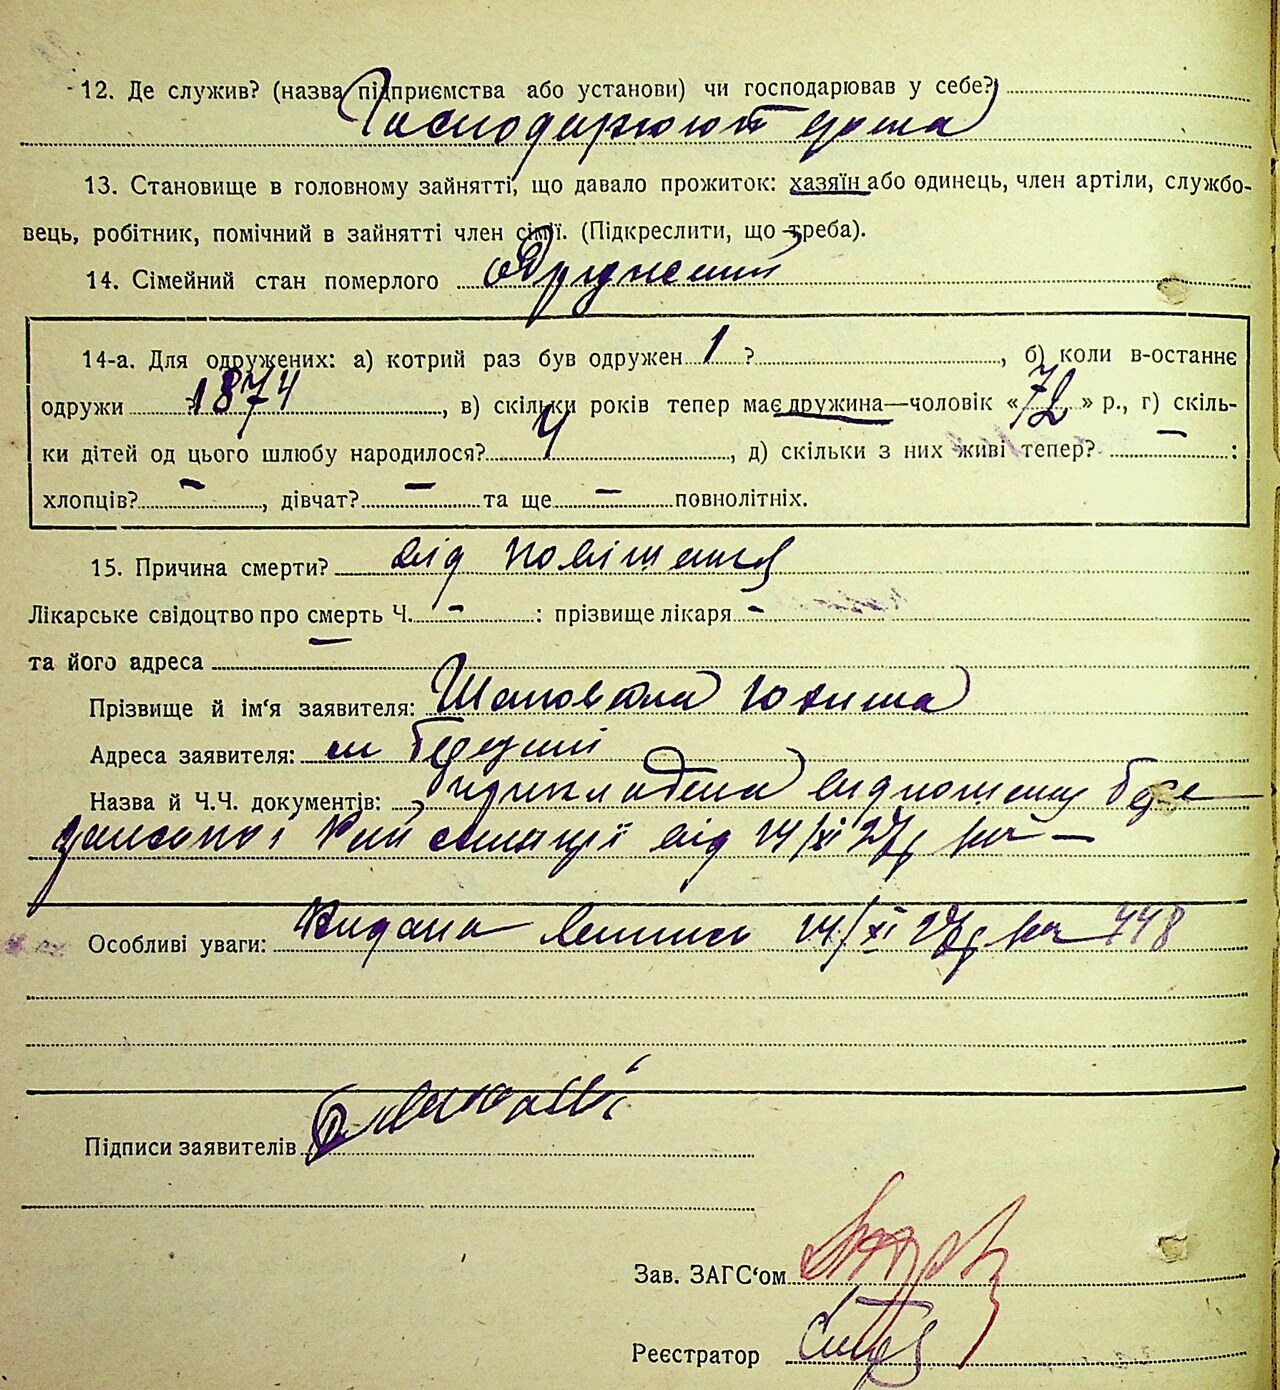 12. Де служив? (назва підприємства або установи) чи господарював у себе?
Господарюют дома
13. Становище в головному зайнятті, що давало прожиток: хазяїн або одинець, член артіли, службо-
вець, робітник, помічний в зайнятті член сімії. (Підкреслити, що треба).
14. Сімейний стан померлого одружений
14-а. Для одружених: а) котрий раз був одружен 1 ?, б) коли в-останнє
одружи 1874, в) скільки років тепер має дружина—чоловік «72» р., г) скіль-
ки дітей од цього шлюбу народилося? 4, д) скільки з них живі тепер? — :
хлопців? —, дівчат? — та ще — повнолітніх.
15. Причина смерти? від повішення
Лікарське свідоцтво про смерть Ч. - : прізвище лікаря -
та його адреса —
Прізвище й ім'я заявителя: Шаповала Юхима
Адреса заявителя: м Березані
Назва й Ч.Ч. документів: прикладена відношення Бере
занської Рай міліції від 24/XI 27 р
Особливі уваги: Видана виписка 24/XI 27 р 448
Підписи заявителів
Зав. ЗАГС'ом
Реєстратор